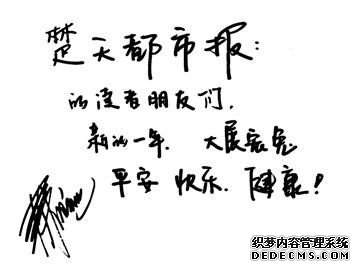 楚天都市报：
的读者朋友们，
新的一年，大展宏兔
平安 快乐、健康！
织梦内容管理系统
DEDECMS.COM